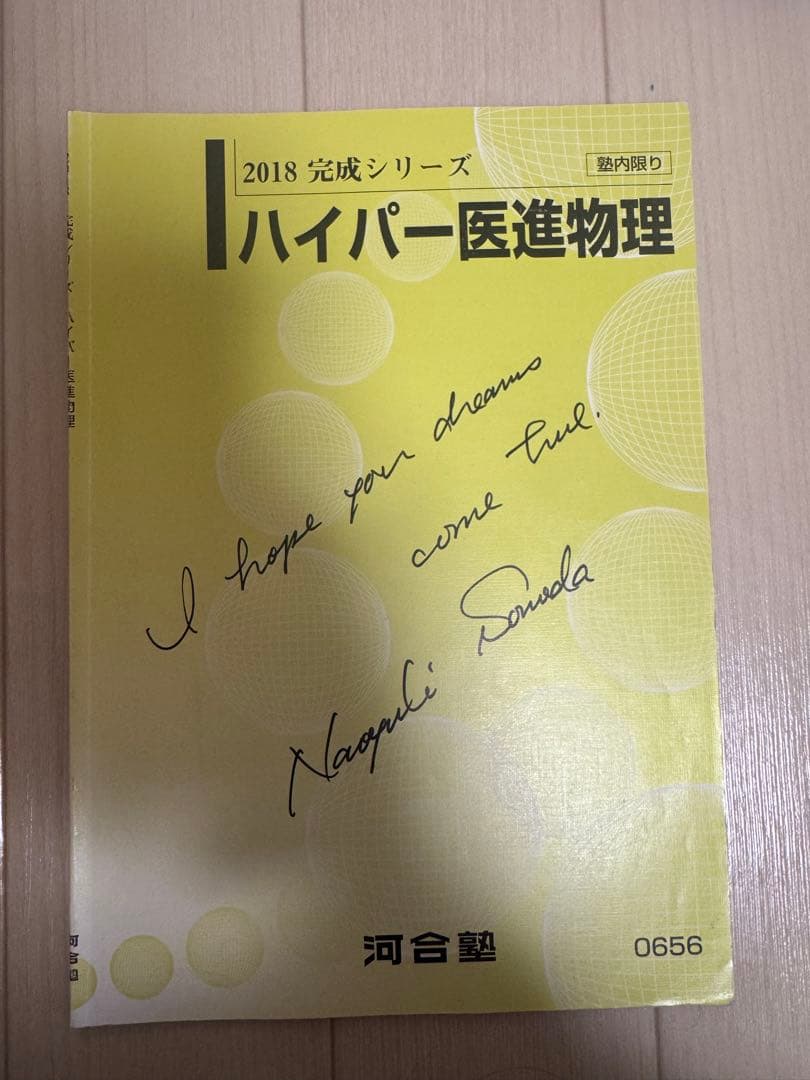 2018 完成シリーズ
塾内限り
ハイパー医進物理
I hope your dreams
come true.
Naoyuki Sonoda
河合塾
0656
完成シリーズ ハイパー医進物理
河合塾